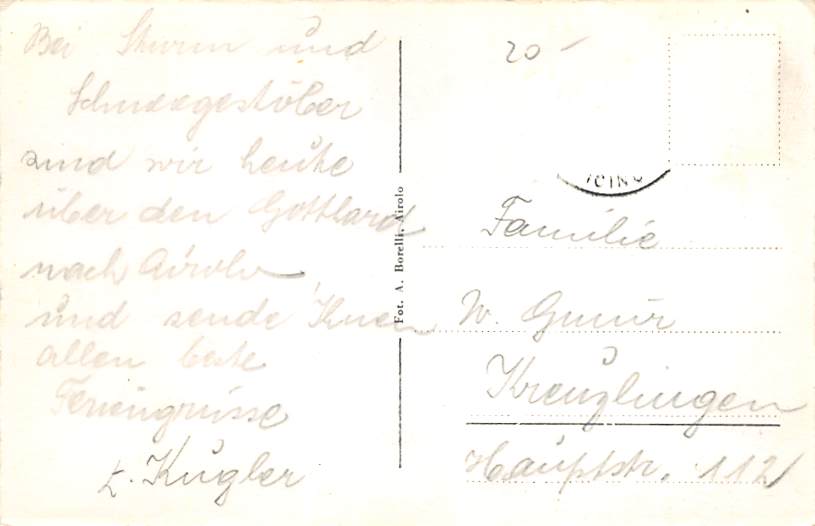 Bei Sturm und
Schneegestöber
sind wir heute
über den Gotthard
nach Airolo
und sende Ihnen
allen beste
Feriengrüsse
Kugler
Fot. A. Borelli, Airolo
20 -
ICINO
Familie
W. Gmür
Kreuzlingen
Hauptstr. 112